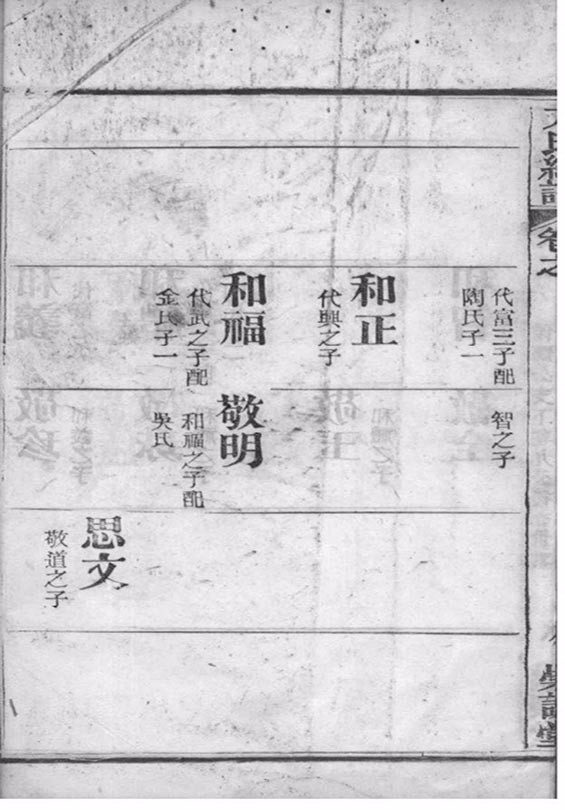 卷之
代富三子配
陶氏子一
和正
代興之子
和福
代武之子配
金氏子一
智之子
敬明
和福之子配
吳氏
思文
敬道之子